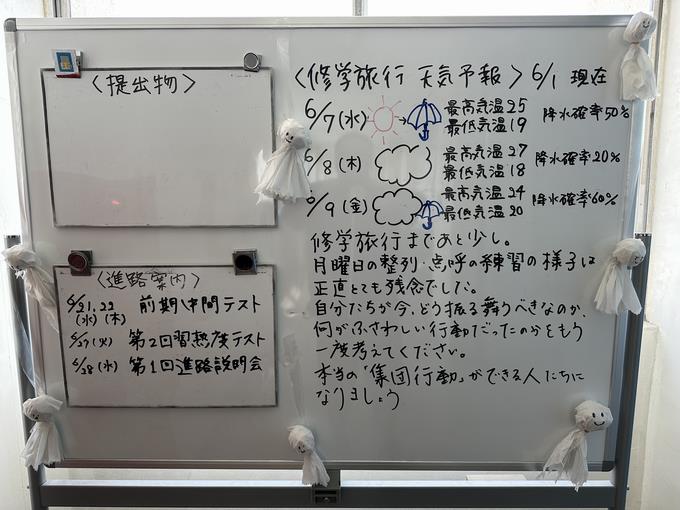 〈提出物〉
〈進路案内〉
6/21,22 前期中間テスト
(水)(木)
6/27(火) 第2回習熟度テスト
6/28(水) 第1回進路説明会
〈修学旅行 天気予報〉6/1 現在
6/7(水) → 最高気温25 降水確率50%
最低気温19
6/8(木) 最高気温27 降水確率20%
最低気温18
6/9(金) 最高気温24 降水確率60%
最低気温20
修学旅行まであと少し。
月曜日の整列・点呼の練習の様子は
正直とても残念でした。
自分たちが今、どう振る舞うべきなのか、
何がふさわしい行動だったのかをもう
一度考えてください。
本当の「集団行動」ができる人たちに
なりましょう